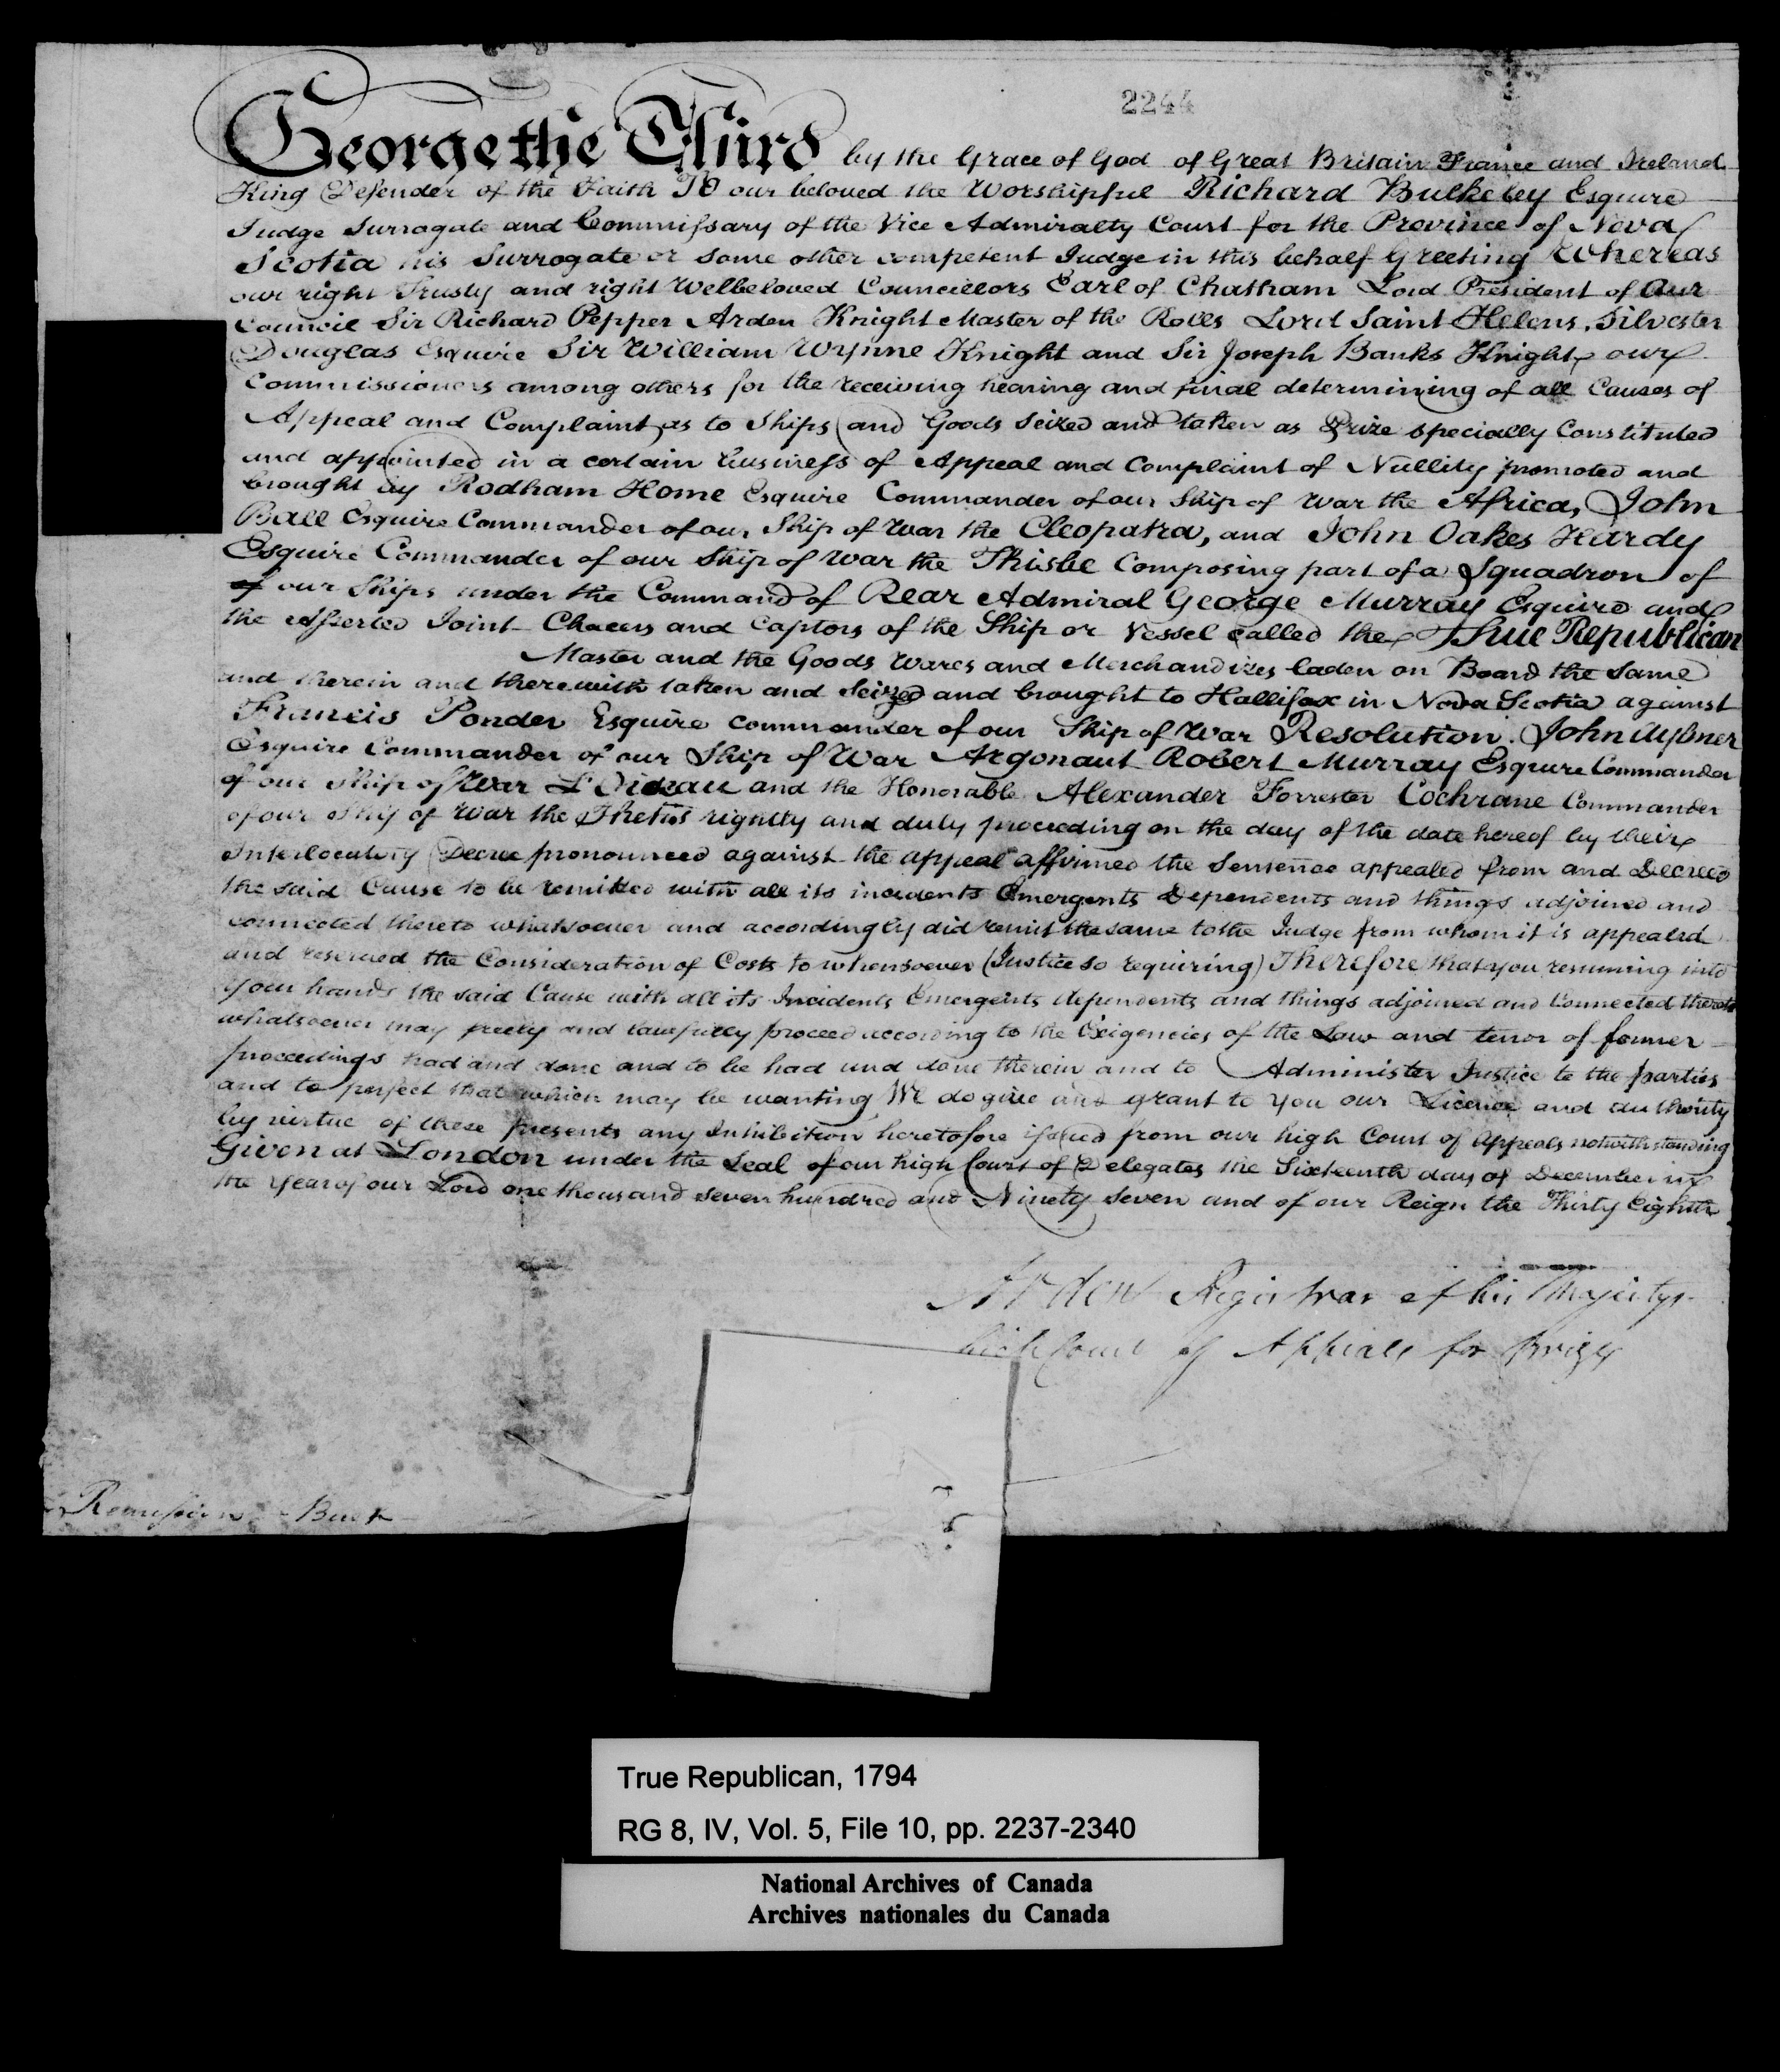 2244
George the Third by the Grace of God of Great Britain France and Ireland
King Defender of the Faith To our beloved the Worshipful Richard Bulkeley Esquire
Judge Surrogate and Commissary of the Vice Admiralty Court for the Province of Nova
Scotia his Surrogate or some other competent Judge in this behalf Greeting Whereas
our right Trusty and right Welbeloved Councillors Earl of Chatham Lord President of Our
Council Sir Richard Pepper Arden Knight Master of the Rolls Lord Saint Helens, Silvester
Douglas Esquire Sir William Wynne Knight and Sir Joseph Banks Knight our
Commissioners among others for the receiving hearing and final determining of all Causes of
Appeal and Complaint as to Ships and Goods Seized and taken as Prize specially Constituted
and appointed in a certain business of Appeal and Complaint of Nullity promoted and
brought by Rodham Home Esquire Commander of our Ship of War the Africa, John
Ball Esquire Commander of our Ship of War the Cleopatra, and John Oakes Hardy
Esquire Commander of our Ship of War the Thisbe Composing part of a Squadron of
of our Ships under the Command of Rear Admiral George Murray Esquire and
the Asserted Joint Chacers and Captors of the Ship or Vessel called the True Republican
Master and the Goods Wares and Merchandizes laden on Board the same
and therein and therewith taken and Seized and brought to Hallifax in Nova Scotia against
Francis Ponder Esquire commander of our Ship of War Resolution. John
Esquire Commander of our Ship of War Argonaut Robert Murray Esquire Commander
of our Ship of War L'Oideau and the Honorable Alexander Forrester Cochrane Commander
of our Ship of War the Thetis rightly and duly proceeding on the day of the date hereof by their
Interlocutory Decree pronounced against the appeal affirmed the Sentence appealed from and Decreed
the said Cause to be remitted with all its incidents Emergents Dependents and things adjoined and
connected thereto whatsoever and accordingly did remit the same to the Judge from whom it is appealed
and reserved the Consideration of Costs to whensoever (Justice so requiring) Therefore that you resuming into
your hands the said Cause with all its Incidents Emergents dependents and things adjoined and Connected thereto
whatsoever may freely and lawfully proceed according to the Exigencies of the Law and tenor of former
proceedings had and done and to be had and done therein and to Administer Justice to the parties
and to perfect that which may be wanting We do give and grant to you our Licence and authority
by virtue of these presents any Inhibition heretofore issued from our high Court of Appeals notwithstanding
Given at London under the Seal of our high Court of Delegates the Sixteenth day of December in
the Year of our Lord one thousand seven hundred and Ninety seven and of our Reign the Thirty Eighth
Arden Registrar of his Majestys
high Court of Appeals for Prizes
Remission
True Republican, 1794
RG 8, IV, Vol. 5, File 10, pp. 2237-2340
National Archives of Canada
Archives nationales du Canada